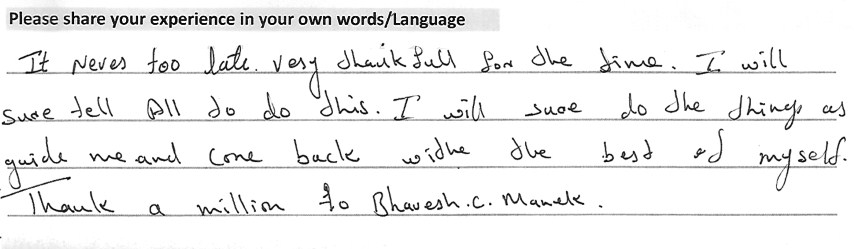 Please share your experience in your own words/Language
It Never too late. Very thankfull for the time. I will
sure tell All to do this. I will sure do the things as
guide me and come back withe the best of myself.
Thank a million to Bhavesh.C. Manek.